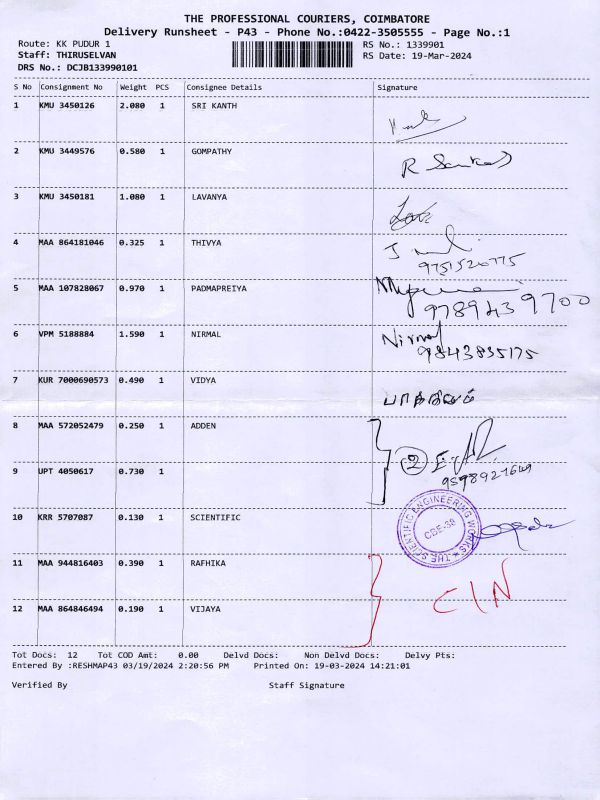 THE PROFESSIONAL COURIERS, COIMBATORE
Delivery Runsheet - P43 - Phone No.:0422-3505555 - Page No.:1
Route: KK PUDUR 1 RS No.: 1339901
Staff: THIRUSELVAN RS Date: 19-Mar-2024
DRS No.: DCJB133990101
S No Consignment No Weight PCS Consignee Details Signature
1 KMU 3450126 2.080 1 SRI KANTH
2 KMU 3449576 0.580 1 GOMPATHY
3 KMU 3450181 1.080 1 LAVANYA
4 MAA 864181046 0.325 1 THIVYA
9751520775
5 MAA 107828067 0.970 1 PADMAPREIYA
9789439700
6 VPM 5188884 1.590 1 NIRMAL Nirmal
9843835175
7 KUR 7000690573 0.490 1 VIDYA
8 MAA 572052479 0.250 1 ADDEN
2
9 UPT 4050617 0.730 1
10 KRR 5707087 0.130 1 SCIENTIFIC
THE SCIENTIFIC ENGINEERING WORKS
CBE-38
11 MAA 944816403 0.390 1 RAFHIKA
C/N
12 MAA 864846494 0.190 1 VIJAYA
Tot Docs: 12 Tot COD Amt: 0.00 Delvd Docs: Non Delvd Docs: Delvy Pts:
Entered By :RESHMAP43 03/19/2024 2:20:56 PM Printed On: 19-03-2024 14:21:01
Verified By Staff Signature